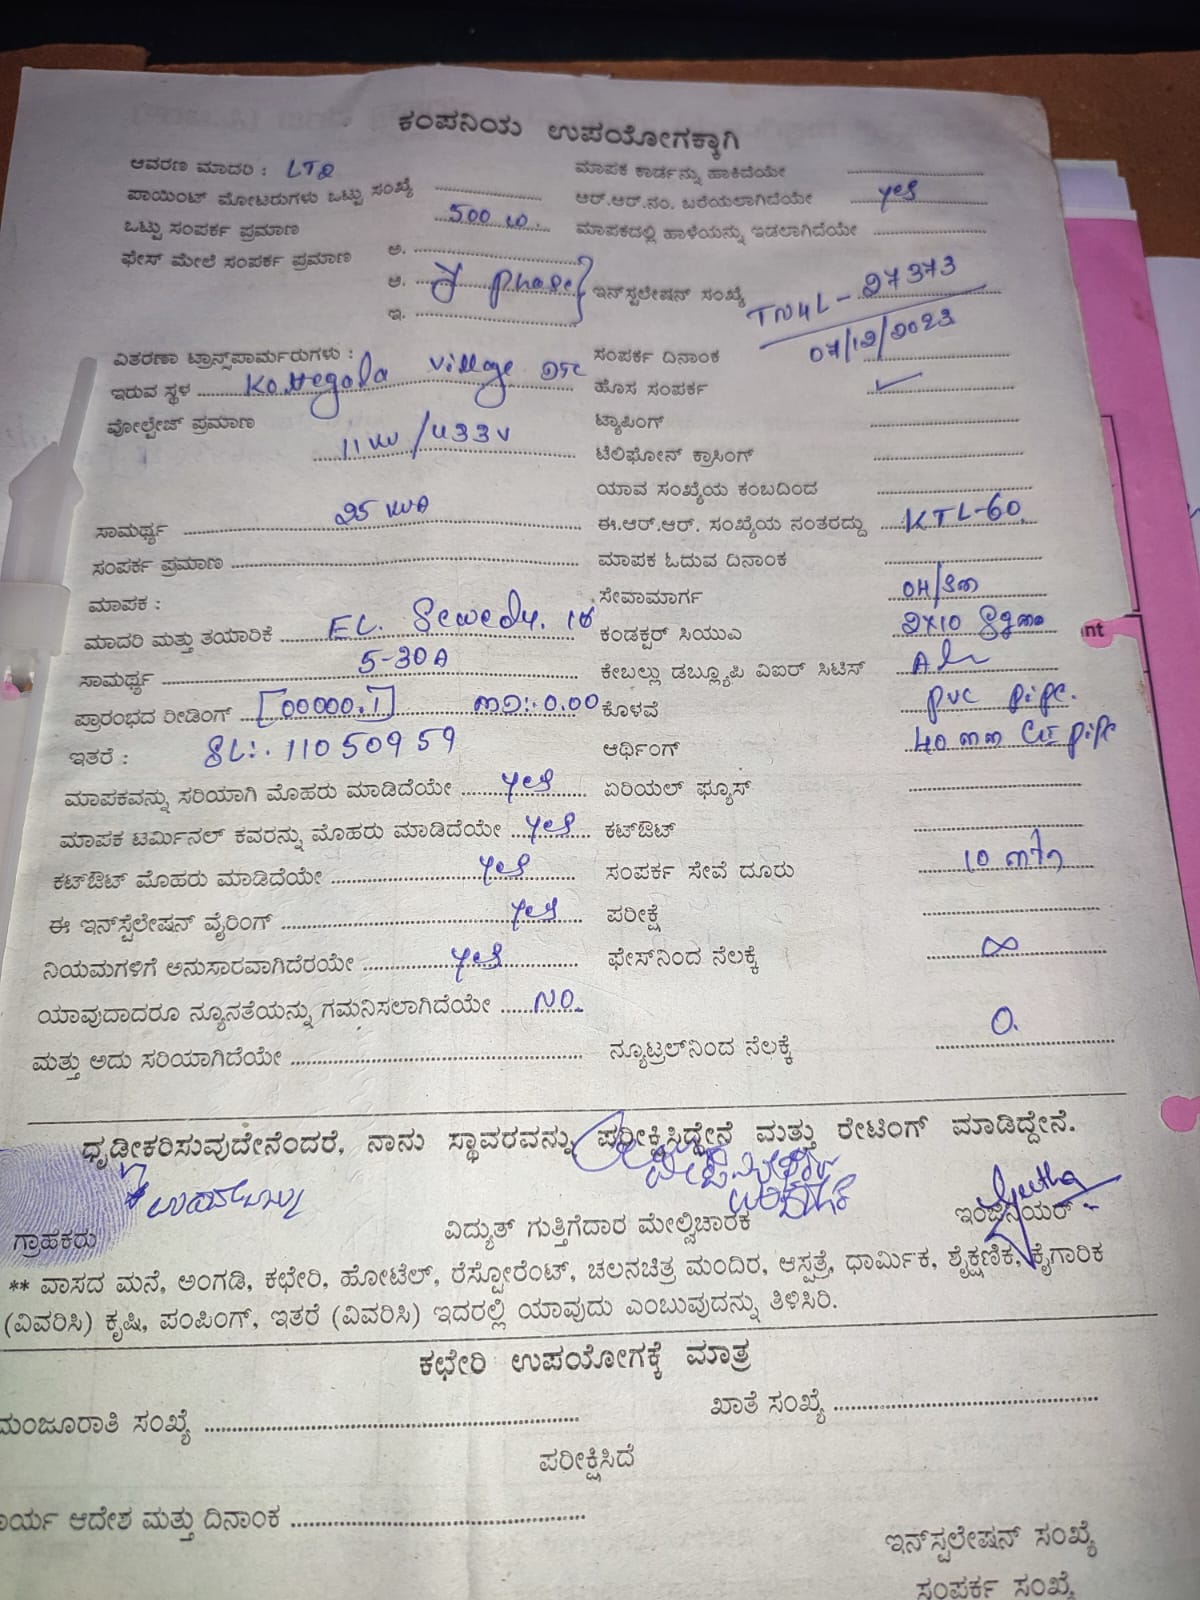 ಕಂಪನಿಯ ಉಪಯೋಗಕ್ಕಾಗಿ
ಆವರಣ ಮಾದರಿ : LT2
ಮಾಪಕ ಕಾರ್ಡನ್ನು ಹಾಕಿದೆಯೇ
ಪಾಯಿಂಟ್ ಮೋಟರುಗಳು ಒಟ್ಟು ಸಂಖ್ಯೆ
ಆರ್.ಆರ್.ನಂ. ಬರೆಯಲಾಗಿದೆಯೇ yes
ಒಟ್ಟು ಸಂಪರ್ಕ ಪ್ರಮಾಣ 500 w.
ಮಾಪಕದಲ್ಲಿ ಹಾಳೆಯನ್ನು ಇಡಲಾಗಿದೆಯೇ
ಫೇಸ್ ಮೇಲೆ ಸಂಪರ್ಕ ಪ್ರಮಾಣ ಅ.
ಆ. phase
ಇ.
ಇನ್‌ಸ್ಟಲೇಷನ್ ಸಂಖ್ಯೆ TN4L - 27373
07/12/2023
ವಿತರಣಾ ಟ್ರಾನ್ಸ್‌ಪಾರ್ಮರುಗಳು :
ಸಂಪರ್ಕ ದಿನಾಂಕ
ಇರುವ ಸ್ಥಳ Kottegala Village
ಹೊಸ ಸಂಪರ್ಕ ✓
ವೋಲ್ಟೇಜ್ ಪ್ರಮಾಣ 11 KV /433 V
ಟ್ಯಾಪಿಂಗ್
ಟೆಲಿಫೋನ್ ಕ್ರಾಸಿಂಗ್
ಯಾವ ಸಂಖ್ಯೆಯ ಕಂಬದಿಂದ
ಸಾಮರ್ಥ್ಯ 25 KVA
ಈ.ಆರ್.ಆರ್. ಸಂಖ್ಯೆಯ ನಂತರದ್ದು KTL-60.
ಸಂಪರ್ಕ ಪ್ರಮಾಣ
ಮಾಪಕ ಓದುವ ದಿನಾಂಕ
ಮಾಪಕ :
ಸೇವಾಮಾರ್ಗ OH/
ಮಾದರಿ ಮತ್ತು ತಯಾರಿಕೆ EL. Sewedy.
ಕಂಡಕ್ಟರ್ ಸಿಯುಎ 2x10
ಸಾಮರ್ಥ್ಯ 5-30A
ಕೇಬಲ್ಲು ಡಬ್ಲ್ಯೂಪಿ ವಿಐಆರ್ ಸಿಟಿಸ್
ಪ್ರಾರಂಭದ ರೀಡಿಂಗ್ [00000.1] 0.00
ಕೊಳವೆ pvc pipe.
ಇತರೆ : SL:. 11050959
ಆರ್ಥಿಂಗ್ 40 GI pipe
ಮಾಪಕವನ್ನು ಸರಿಯಾಗಿ ಮೊಹರು ಮಾಡಿದೆಯೇ yes
ಏರಿಯಲ್ ಫ್ಯೂಸ್
ಮಾಪಕ ಟರ್ಮಿನಲ್ ಕವರನ್ನು ಮೊಹರು ಮಾಡಿದೆಯೇ yes
ಕಟ್‌ಔಟ್
ಕಟ್‌ಔಟ್ ಮೊಹರು ಮಾಡಿದೆಯೇ yes
ಸಂಪರ್ಕ ಸೇವೆ ದೂರು 10
ಈ ಇನ್‌ಸ್ಟೆಲೇಷನ್ ವೈರಿಂಗ್ yes
ಪರೀಕ್ಷೆ
ನಿಯಮಗಳಿಗೆ ಅನುಸಾರವಾಗಿದೆರಯೇ yes
ಫೇಸ್‌ನಿಂದ ನೆಲಕ್ಕೆ ∞
ಯಾವುದಾದರೂ ನ್ಯೂನತೆಯನ್ನು ಗಮನಿಸಲಾಗಿದೆಯೇ NO.
ಮತ್ತು ಅದು ಸರಿಯಾಗಿದೆಯೇ
ನ್ಯೂಟ್ರಲ್‌ನಿಂದ ನೆಲಕ್ಕೆ 0.
ಧೃಡೀಕರಿಸುವುದೇನೆಂದರೆ, ನಾನು ಸ್ಥಾವರವನ್ನು ಪರೀಕ್ಷಿಸಿದ್ದೇನೆ ಮತ್ತು ರೇಟಿಂಗ್ ಮಾಡಿದ್ದೇನೆ.
ಗ್ರಾಹಕರು
ವಿದ್ಯುತ್ ಗುತ್ತಿಗೆದಾರ ಮೇಲ್ವಿಚಾರಕ
ಇಂಜಿನಿಯರ್
** ವಾಸದ ಮನೆ, ಅಂಗಡಿ, ಕಛೇರಿ, ಹೋಟೆಲ್, ರೆಸ್ಟೋರೆಂಟ್, ಚಲನಚಿತ್ರ ಮಂದಿರ, ಆಸ್ಪತ್ರೆ, ಧಾರ್ಮಿಕ, ಶೈಕ್ಷಣಿಕ, ಕೈಗಾರಿಕ
(ವಿವರಿಸಿ) ಕೃಷಿ, ಪಂಪಿಂಗ್, ಇತರೆ (ವಿವರಿಸಿ) ಇದರಲ್ಲಿ ಯಾವುದು ಎಂಬುವುದನ್ನು ತಿಳಿಸಿರಿ.
ಕಛೇರಿ ಉಪಯೋಗಕ್ಕೆ ಮಾತ್ರ
ಮಂಜೂರಾತಿ ಸಂಖ್ಯೆ
ಖಾತೆ ಸಂಖ್ಯೆ
ಪರೀಕ್ಷಿಸಿದೆ
ಆದೇಶ ಮತ್ತು ದಿನಾಂಕ
ಇನ್‌ಸ್ಟಲೇಷನ್ ಸಂಖ್ಯೆ
ಸಂಪರ್ಕ ಸಂಖ್ಯೆ